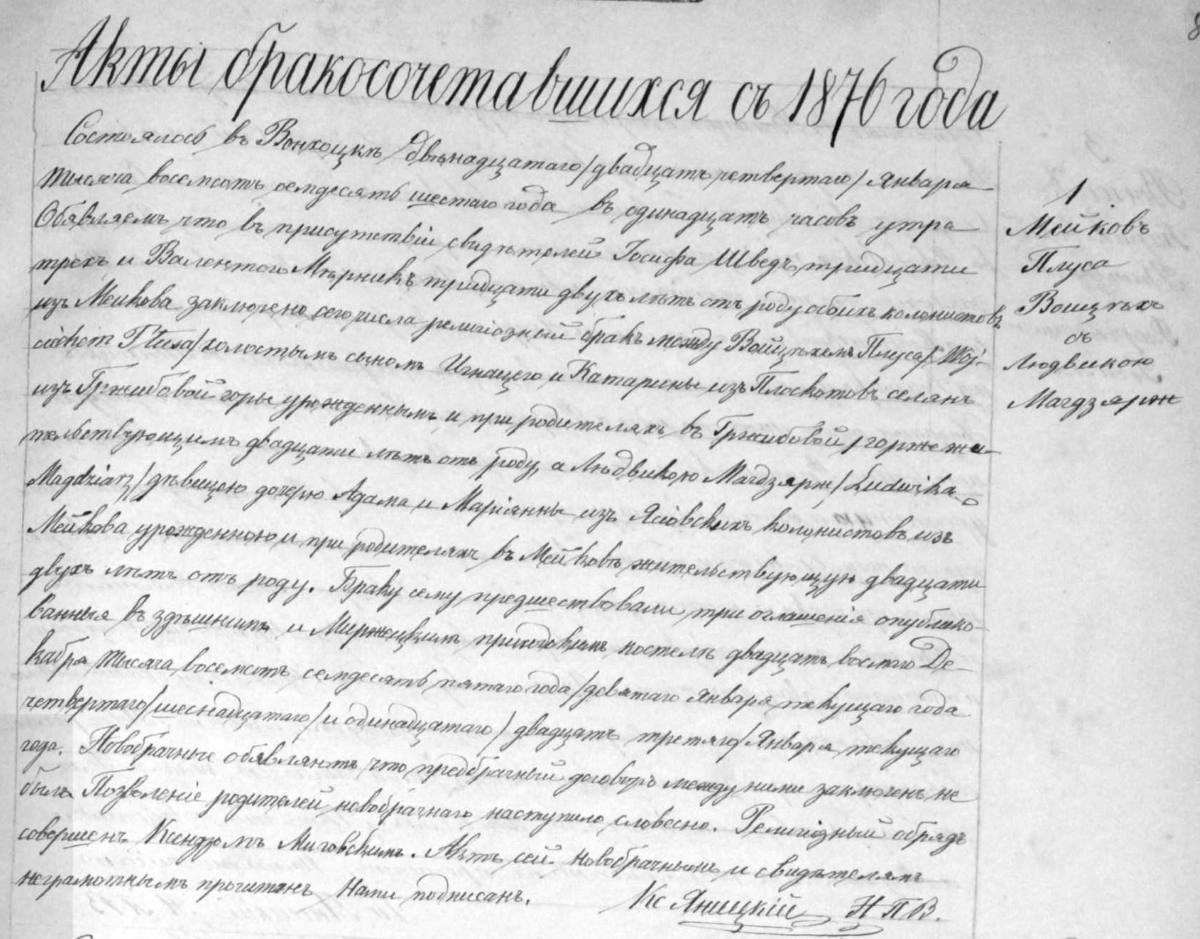 Акты бракосочетавшихся съ 1876 года
Состоялось въ Вонхоцкѣ двѣнадцатаго /двадцать четвертаго/ Января
тысяча восемсотъ семдесятъ шестаго года въ одинадцать часовъ утра
Обявляемъ что въ присутствіи свидѣтелей Іосифа Шведъ тридцати
трехъ и Валентого Мѣрникъ тридцати двухъ лѣтъ отъ роду обоихъ колонистовъ
изъ Мейкова заключено сего числа религіозный бракъ между Войцѣхемъ Плуса /Woj-
ciechem Plusa/ холостымъ сыномъ Игнацего и Катарины изъ Плоскотовъ селянъ
изъ Гржибовой горы урожденнымъ и при родителяхъ въ Гржибовой горже жи-
тельствующимъ двадцати лѣтъ отъ роду, а Людвикою Магдзярж /Ludwika
Magdziarz/ дѣвицою дочерю Адама и Маріянны изъ Ясіовскихъ колонистовъ изъ
Мейкова урожденною и при родителяхъ въ Мейковѣ жительствующую двадцати
двухъ лѣтъ отъ роду. Браку сему предшествовали три оглашенія опублико-
ванныя въ здѣшнимъ и Миржецкимъ приходскимъ костелѣ двадцать восмаго Де-
кабря тысяча восемсотъ семдесятъ пятаго года /девятаго Января текущаго года
четвертаго /шеснадцатаго/ и одинадцатаго /двадцать третяго/ Января текущаго
года. Новобрачные обявляютъ что предбрачный договоръ между ними заключенъ не
былъ Позвленіе родителей новобрачнаго наступило словесно. Религіозный обрядъ
совершенъ Ксендзомъ Миговскимъ. Актъ сей новобрачнымъ и свидѣтелямъ
неграмотнымъ прочитанъ Нами подписанъ. Кс Яницкій Н П В.
1
Мейковъ
Плуса
Войцѣхъ
съ
Людвикою
Магдзярж